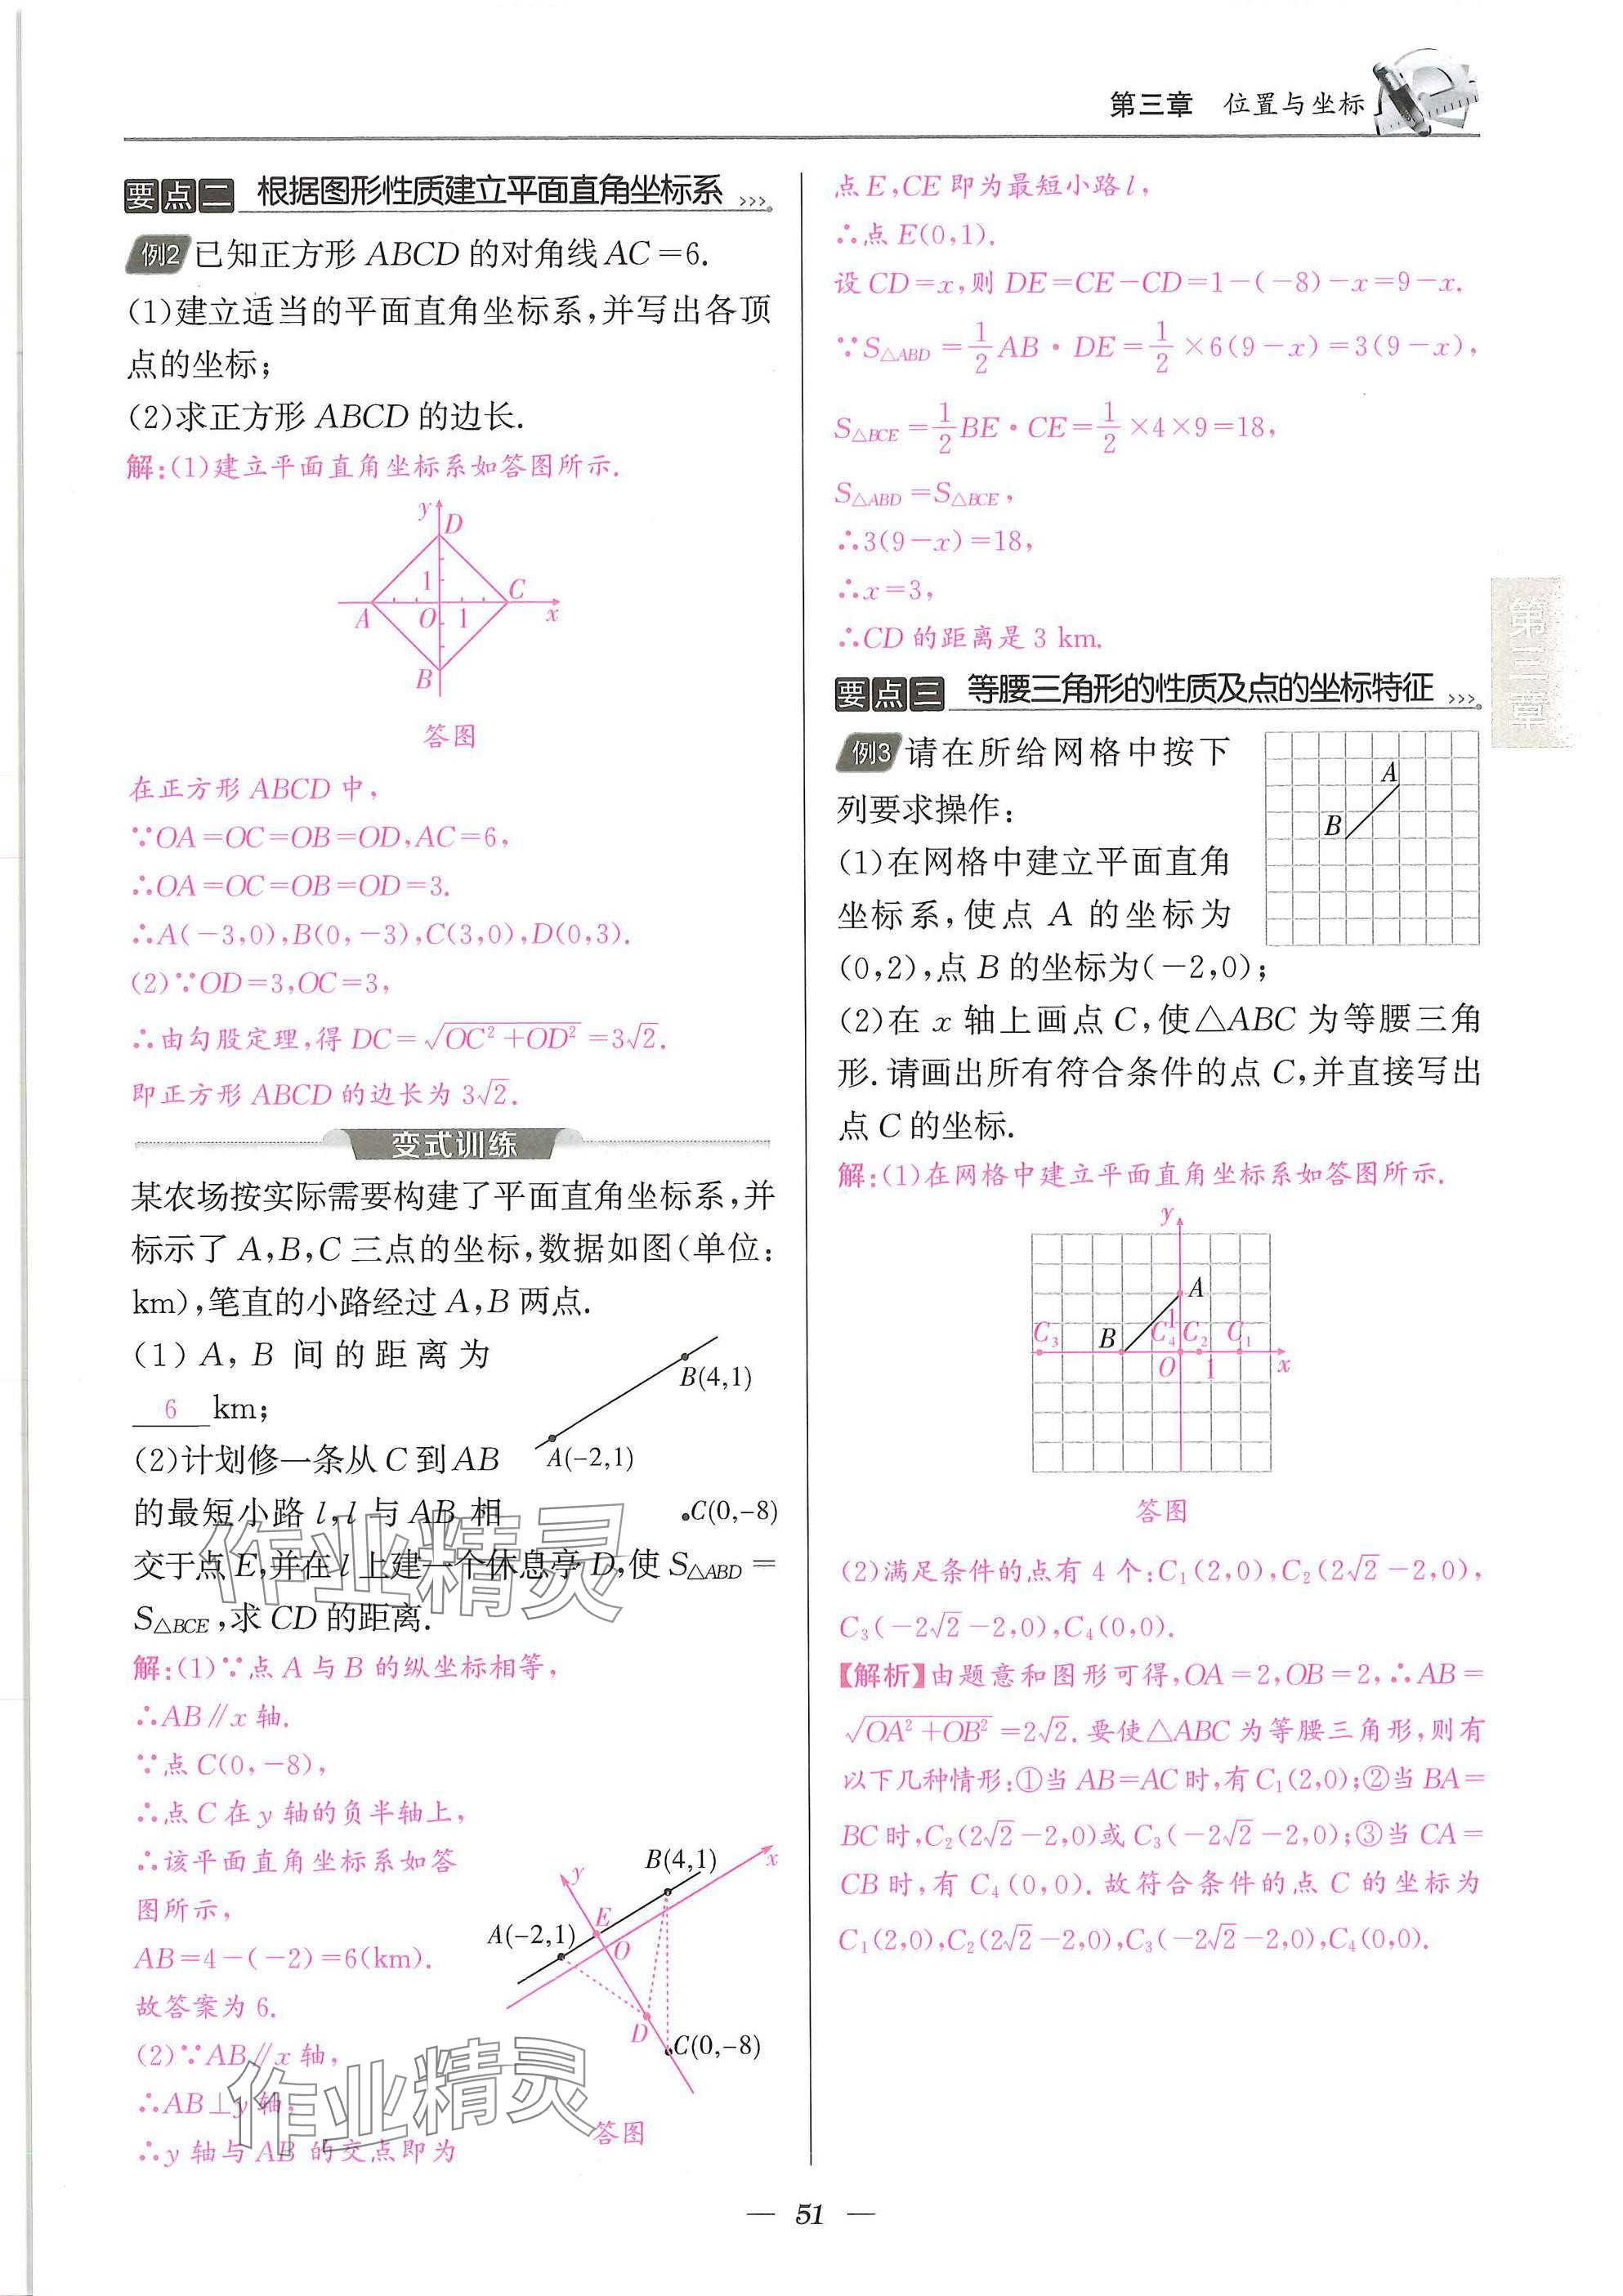 第三章 位置与坐标
要点二 根据图形性质建立平面直角坐标系 >>>
例2 已知正方形 ABCD 的对角线 AC=6.
(1)建立适当的平面直角坐标系,并写出各顶
点的坐标;
(2)求正方形 ABCD 的边长.
解:(1)建立平面直角坐标系如答图所示.
y
D
1
C
A
O
1
x
B
答图
在正方形 ABCD 中,
∵OA=OC=OB=OD,AC=6,
∴OA=OC=OB=OD=3.
∴A(-3,0),B(0,-3),C(3,0),D(0,3).
(2)∵OD=3,OC=3,
∴由勾股定理,得 DC=√(OC²+OD²)=3√2.
即正方形 ABCD 的边长为 3√2.
变式训练
某农场按实际需要构建了平面直角坐标系,并
标示了 A,B,C 三点的坐标,数据如图(单位:
km),笔直的小路经过 A,B 两点.
(1) A, B 间的距离为
6 km;
(2)计划修一条从 C 到 AB
的最短小路 l,l 与 AB 相
交于点 E,并在 l 上建一个休息亭 D,使 S△ABD=
S△BCE,求 CD 的距离.
B(4,1)
A(-2,1)
C(0,-8)
解:(1)∵点 A 与 B 的纵坐标相等,
∴AB∥x 轴.
∵点 C(0,-8),
∴点 C 在 y 轴的负半轴上,
∴该平面直角坐标系如答
图所示,
AB=4-(-2)=6(km).
故答案为 6.
(2)∵AB∥x 轴,
∴AB⊥y 轴,
∴y 轴与 AB 的交点即为
B(4,1)
x
y
A(-2,1)
E
O
D
C(0,-8)
答图
点 E,CE 即为最短小路 l,
∴点 E(0,1).
设 CD=x,则 DE=CE-CD=1-(-8)-x=9-x.
∵S△ABD=1/2 AB·DE=1/2×6(9-x)=3(9-x),
S△BCE=1/2 BE·CE=1/2×4×9=18,
S△ABD=S△BCE,
∴3(9-x)=18,
∴x=3,
∴CD 的距离是 3 km.
要点三 等腰三角形的性质及点的坐标特征 >>>
例3 请在所给网格中按下
列要求操作:
(1)在网格中建立平面直角
坐标系,使点 A 的坐标为
(0,2),点 B 的坐标为(-2,0);
(2)在 x 轴上画点 C,使△ABC 为等腰三角
形.请画出所有符合条件的点 C,并直接写出
点 C 的坐标.
A
B
解:(1)在网格中建立平面直角坐标系如答图所示.
y
A
1
C₃
B
C₄
C₂
C₁
O
1
x
答图
(2)满足条件的点有 4 个:C₁(2,0),C₂(2√2-2,0),
C₃(-2√2-2,0),C₄(0,0).
【解析】由题意和图形可得,OA=2,OB=2,∴AB=
√(OA²+OB²)=2√2.要使△ABC 为等腰三角形,则有
以下几种情形:①当 AB=AC 时,有 C₁(2,0);②当 BA=
BC 时,C₂(2√2-2,0)或 C₃(-2√2-2,0);③当 CA=
CB 时,有 C₄(0,0).故符合条件的点 C 的坐标为
C₁(2,0),C₂(2√2-2,0),C₃(-2√2-2,0),C₄(0,0).
第三章
作业精灵
作业精灵
— 51 —